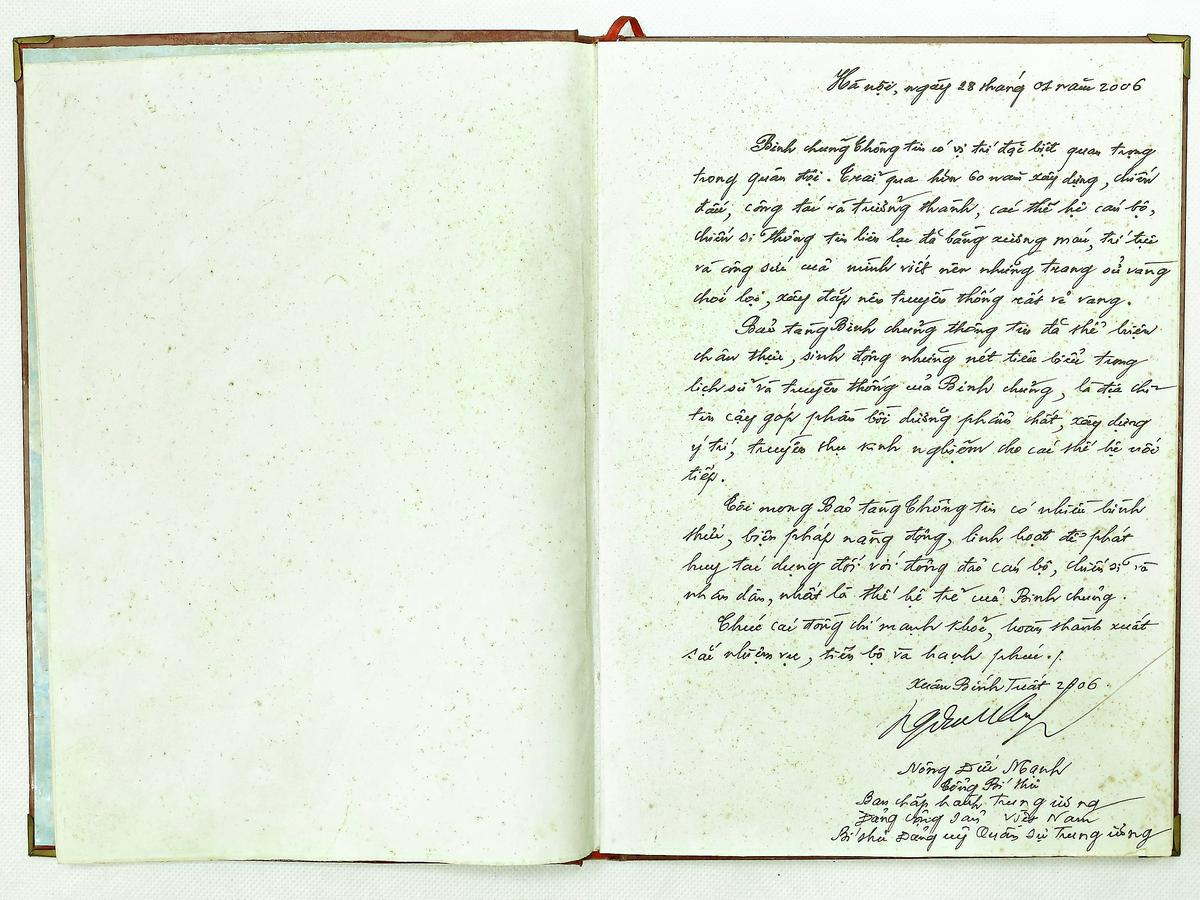 Hà nội, ngày 28 tháng 01 năm 2006
Binh chủng Thông tin có vị trí đặc biệt quan trọng
trong quân đội. Trải qua hơn 60 năm xây dựng, chiến
đấu, công tác và trưởng thành, các thế hệ cán bộ,
chiến sĩ thông tin liên lạc đã bằng xương máu, trí tuệ
và công sức của mình viết nên những trang sử vàng
chói lọi, xây đắp nên truyền thống rất vẻ vang.
Bảo tàng Binh chủng thông tin đã thể hiện
chân thực, sinh động những nét tiêu biểu trong
lịch sử và truyền thống của Binh chủng, là địa chỉ
tin cậy góp phần bồi dưỡng phẩm chất, xây dựng
ý trí, truyền thụ kinh nghiệm cho các thế hệ nối
tiếp.
Tôi mong Bảo tàng Thông tin có nhiều hình
thức, biện pháp năng động, linh hoạt để phát
huy tác dụng đối với đông đảo cán bộ, chiến sĩ và
nhân dân, nhất là thế hệ trẻ của Binh chủng.
Chúc các đồng chí mạnh khoẻ, hoàn thành xuất
sắc nhiệm vụ, tiến bộ và hạnh phúc./.
Xuân Bính Tuất 2006
Nông Đức Mạnh
Tổng Bí thư
Ban chấp hành Trung ương
Đảng Cộng sản Việt Nam
Bí thư Đảng uỷ Quân sự Trung ương